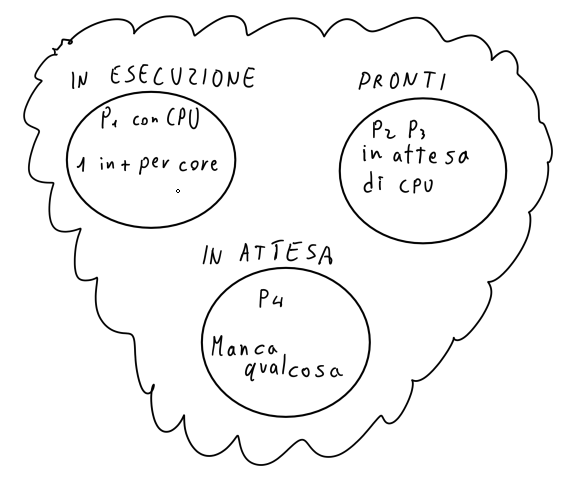 IN ESECUZIONE
P1 con CPU
1 in + per core
PRONTI
P2 P3
in attesa
di CPU
IN ATTESA
P4
Manca
qualcosa